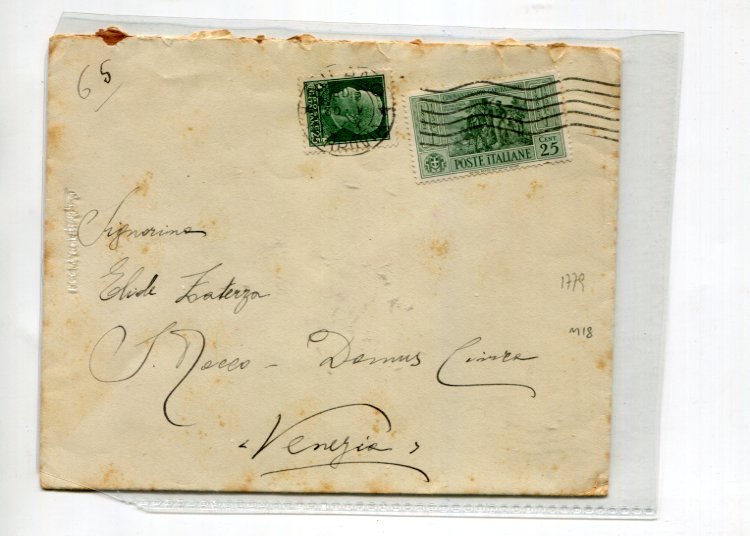 65
POSTE ITALIANE CENT. 25
Signorina
Elide Zaterza
1779
M18
S. Rocco - Domus Civica
"Venezia"